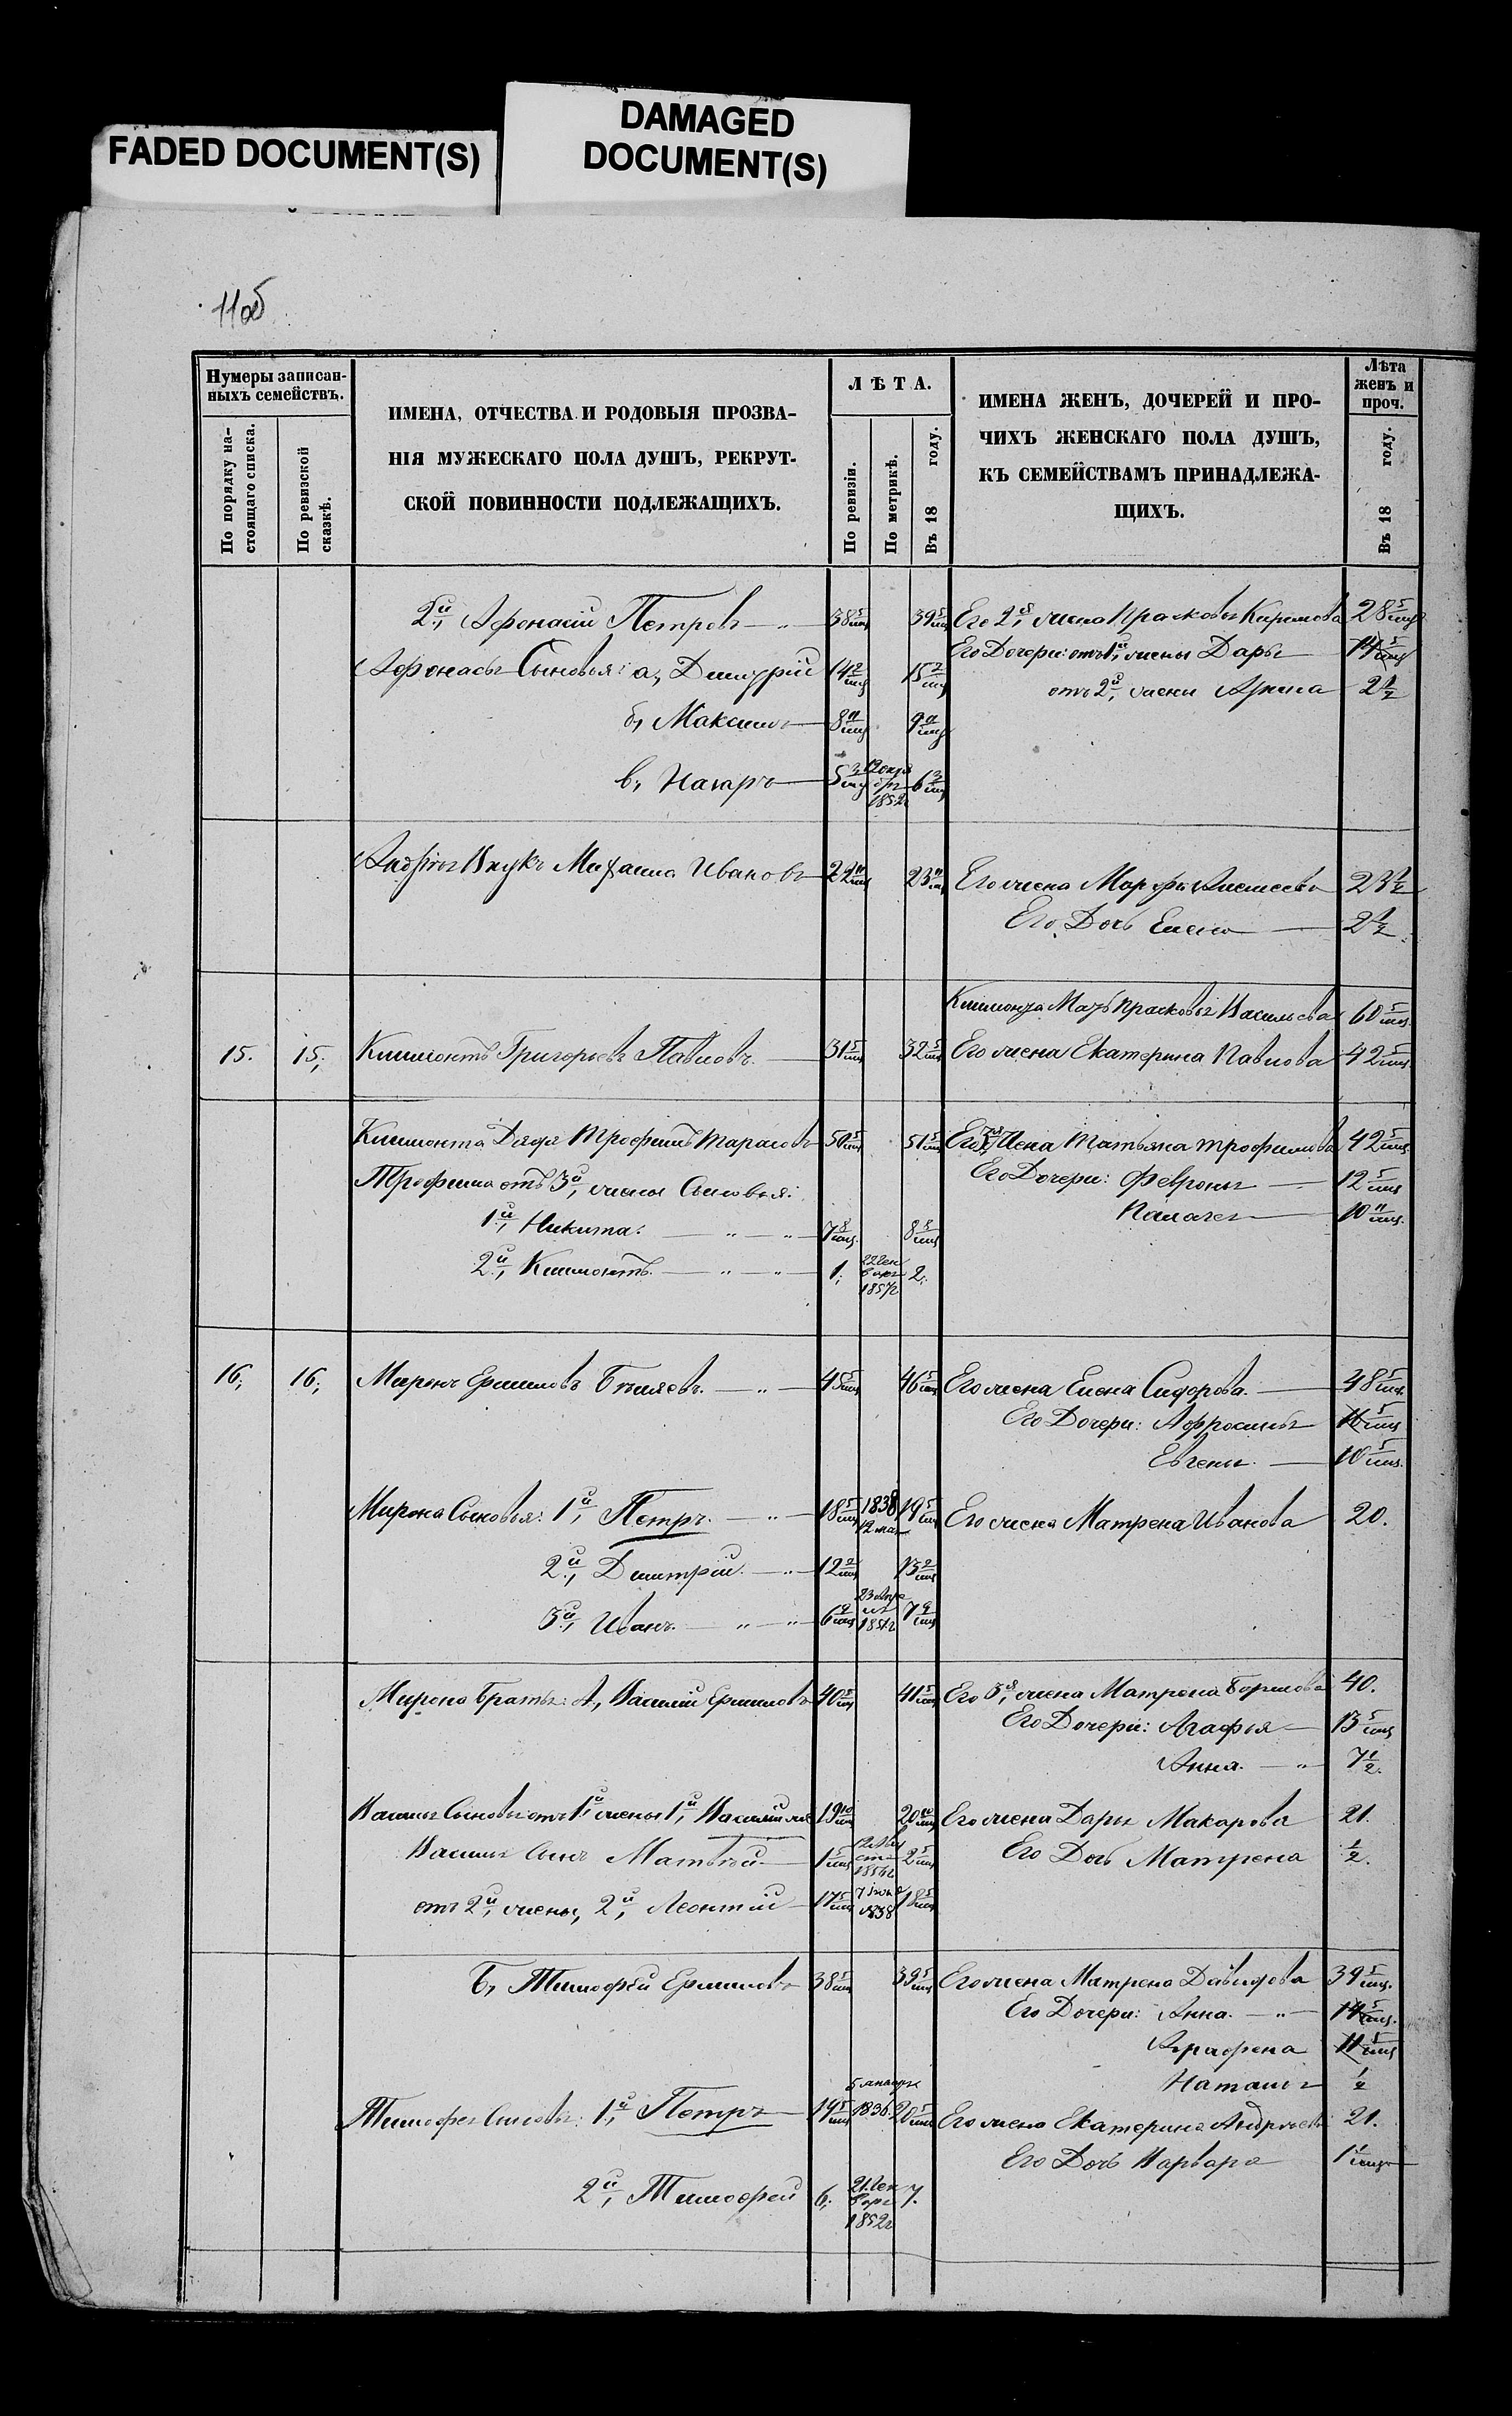 FADED DOCUMENT(S)
DAMAGED
DOCUMENT(S)
11об
Нумеры записан-
ныхъ семействъ.
По порядку на-
стоящаго списка.
По ревизской
сказкѣ.
ИМЕНА, ОТЧЕСТВА И РОДОВЫЯ ПРОЗВА-
НІЯ МУЖЕСКАГО ПОЛА ДУШЪ, РЕКРУТ-
СКОЙ ПОВИННОСТИ ПОДЛЕЖАЩИХЪ.
ЛѢТА.
По ревизіи.
По метрикѣ.
Въ 18 году.
ИМЕНА ЖЕНЪ, ДОЧЕРЕЙ И ПРО-
ЧИХЪ ЖЕНСКАГО ПОЛА ДУШЪ,
КЪ СЕМЕЙСТВАМЪ ПРИНАДЛЕЖА-
ЩИХЪ.
Лѣта
женъ и
проч.
Въ 18 году.
2й, Афонасій Петровъ 38 5/мц 39 5/мц Его 2я, жена Прасковья 28 5/мц
Его Дочери: отъ 1й, жены Дарья 14 5/мц
Афонасья Сыновья: а, Димитрій 14 2/мц 15 2/мц
отъ 2й, жены Арина 2 1/2
б, Максимъ 8 11/мц 9 11/мц
в, Назаръ 5 3/мц 12 октя бря 1852г 6 3/мц
Андрея Внукъ Михаила Ивановъ 22 11/мц 23 11/мц Его жена Марфа 23 1/2
Его Дочь Елена 2 1/2
Климонта Мать Прасковья Васильева 60 5/мц
15. 15; Климонтъ Григорьевъ Павловъ 31 5/мц 32 5/мц Его жена Екатерина Павлова 42 5/мц
Климонта Дядя Трофимъ Тарасовъ 50 5/мц 51 5/мц Его жена Татьяна Трофимова 42 5/мц
Трофима отъ 3й, жены Сыновья: Его Дочери: Февронья 12 5/мц
1й, Никита. 7 8/мц. 8 8/мц Палагея 10 11/мц.
2й, Климонтъ. 1; 22 ген варя 1857г 2;
16; 16; Миронъ Ермиловъ Бѣляевъ. 45 5/мц 46 5/мц Его жена Елена Сидорова. 48 5/мц.
Его Дочери: Афросинья 16 5/мц
Евгенья. 10 5/мц.
Мирона Сыновья: 1й, Петръ. 18 5/мц 1838 12 мая 19 5/мц Его жена Матрена Иванова 20.
2й, Дмитрій. 12 2/мц 13 2/мц
3й, Иванъ. 6 9/мц 23 Апре ля 1851г 7 9/мц
Мирона Братья: А, Василій Ермиловъ 40 5/мц 41 5/мц Его 3я, жена Матрена Борисова 40.
Его Дочери: Агафья 13 5/мц
Анна. 7 1/2.
Василья Сыновья отъ 1й жены 1й, Василій 19 10/мц 20 10/мц Его жена Дарья Макарова 21.
Василья Сынъ Матвей 1 5/мц 2 5/мц Его Дочь Матрена 1/2.
отъ 2й, жены, 2й, Леонтій 17 5/мц 7 іюня 1838 18 5/мц
Б, Тимофей Ермиловъ 38 5/мц 39 5/мц Его жена Матрена Давыдова 39 5/мц.
Его Дочери: Анна. 14 5/мц.
Аграфена 11 5/мц
Наталья 1/2
Тимофея Сыновья: 1й, Петръ 19 5/мц 5 Января 1838 20 5/мц Его жена Екатерина Андреева 21.
Его Дочь Варвара 1
2й, Тимофей 6; 21 ген варя 1852г 7.